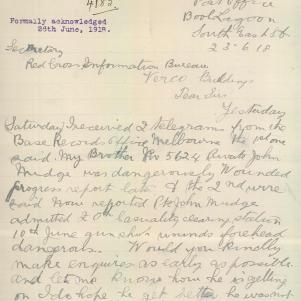 4182
Post Office
Formally acknowledged
26th June, 1918.
Bool Lagoon
South East SA
23-6-18
Secretary
Red Cross Information Bureau
Verco Buildings
Dear Sir
Yesterday
Saturday I received 2 telegrams from the
Base Records Office Melbourne the 1st one
said My Brother No 5624 Private John
Mudge was dangerously Wounded
progress report late & the 2nd were
said now reported Pte John Mudge
admitted 20th casuality clearing station
10th June gunshot wounds forehead
dangerous. Would you kindly
make enquires as early as possible
and let me know how he is getting
on I do hope he get better he was